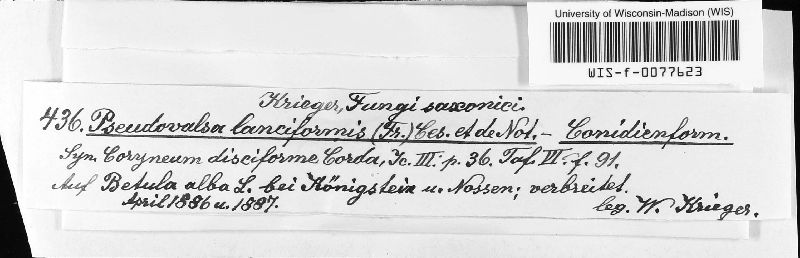 University of Wisconsin-Madison (WIS)
WIS-f-0077623
Krieger, Fungi saxonici.
436. Pseudovalsa lanciformis (Fr.) Ces. et de Not. – Conidienform.
Syn. Coryneum disciforme Corda, Jc. III. p. 36. Taf. VI. f. 91.
Auf Betula alba L. bei Königstein u. Nossen; verbreitet.
April 1886 u. 1887.
leg. W. Krieger.